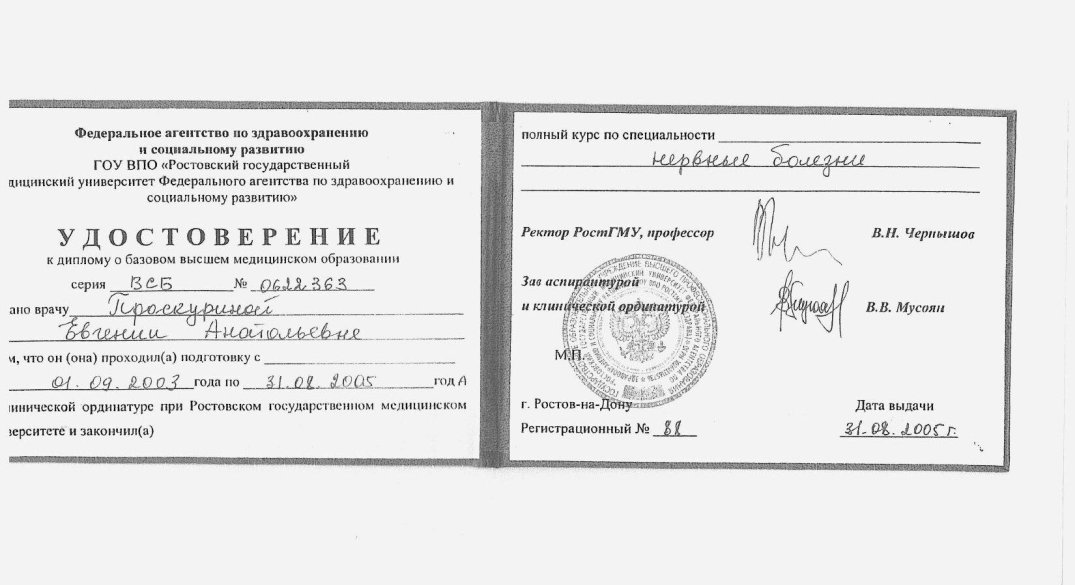 Федеральное агентство по здравоохранению
и социальному развитию
ГОУ ВПО «Ростовский государственный
дицинский университет Федерального агентства по здравоохранению и
социальному развитию»
УДОСТОВЕРЕНИЕ
к диплому о базовом высшем медицинском образовании
серия ВСБ № 0622363
ано врачу Проскуриной
Евгении Анатольевне
м, что он (она) проходил(а) подготовку с
01.09.2003 года по 31.08.2005 год А
линической ординатуре при Ростовском государственном медицинском
верситете и закончил(а)
полный курс по специальности
нервные болезни
Ректор РостГМУ, профессор В.Н. Чернышов
Зав аспирантурой
и клинической ординатурой В.В. Мусоян
М.П.
г. Ростов-на-Дону Дата выдачи
Регистрационный № 88 31.08.2005 г.